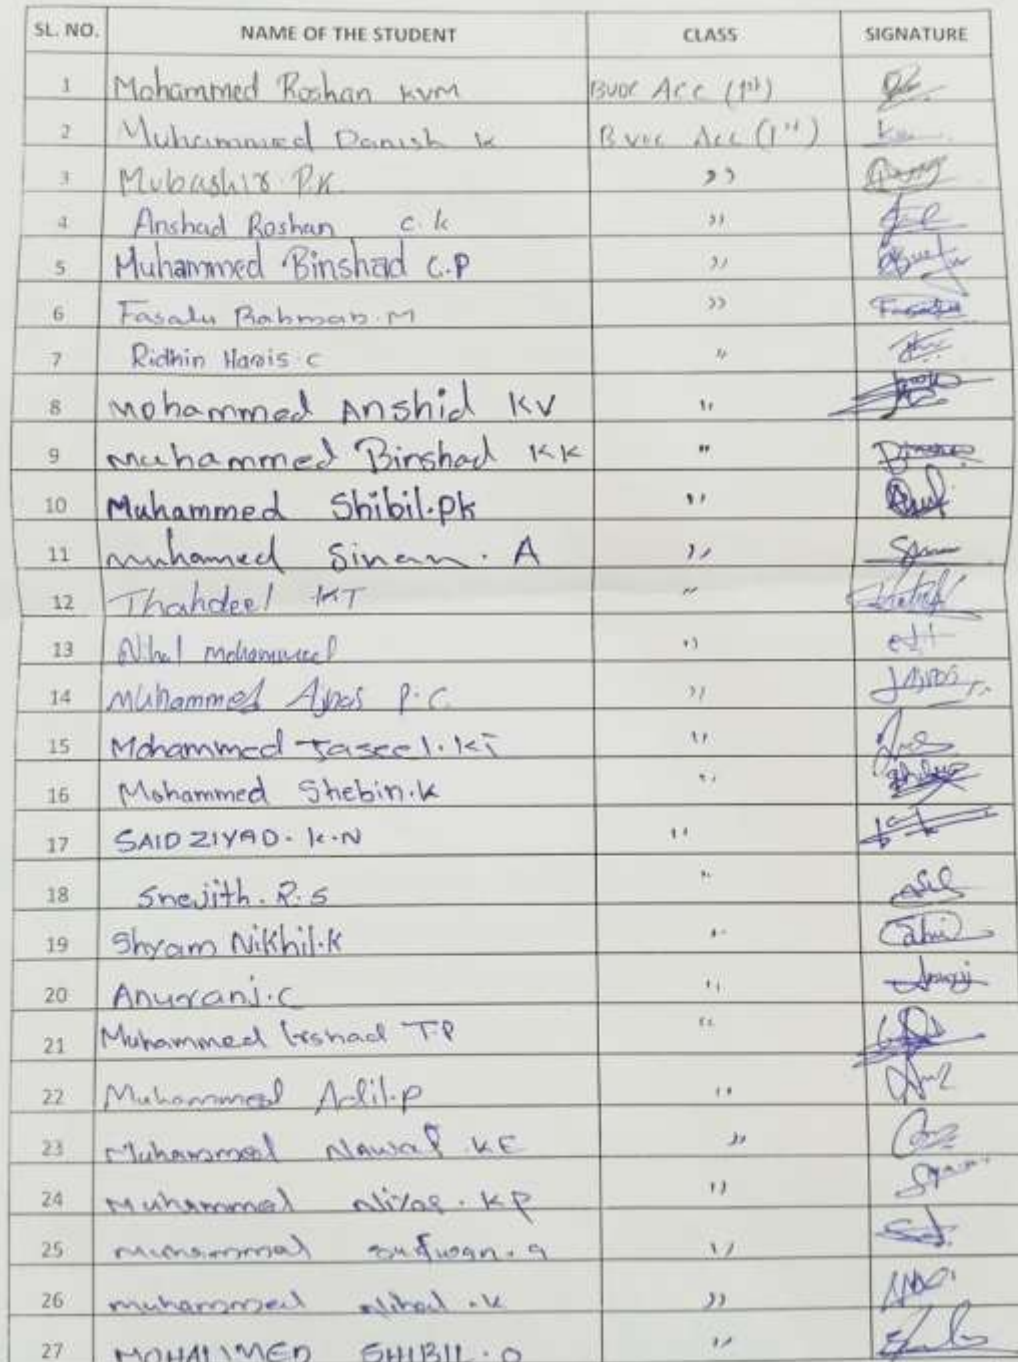 SL. NO. NAME OF THE STUDENT CLASS SIGNATURE
1 Mohammed Roshan KVM BVOC Acc (1st)
2 Muhammed Danish K B voc Acc (1st)
3 Mubashir P.K. ,,
4 Anshad Roshan C.K ,,
5 Muhammed Binshad C.P ,,
6 Fasalu Rahman.M ,,
7 Ridhin Haris C ,,
8 Mohammed Anshid KV ,,
9 Muhammed Binshad KK ,,
10 Muhammed Shibil.PK ,,
11 muhamed Sinan. A ,,
12 Thahdeel KT ,,
13 Nihal mohammed ,,
14 Muhammed Ajnas P.C ,,
15 Mohammed Jaseel.KT ,,
16 Mohammed Shebin.K ,,
17 SAID ZIYAD. K.N ,,
18 Snejith.R.S ,,
19 Shyam Nikhil.K ,,
20 Anuranj.C ,,
21 Muhammed Irshad T.P ,,
22 Muhammed Adil.P ,,
23 Muhammed Nawaf.KE ,,
24 Muhammed Niyas.KP ,,
25 Muhammed Sufwan.a ,,
26 muhammed Nihal.K ,,
27 MOHAMMED SHIBIL.O ,,